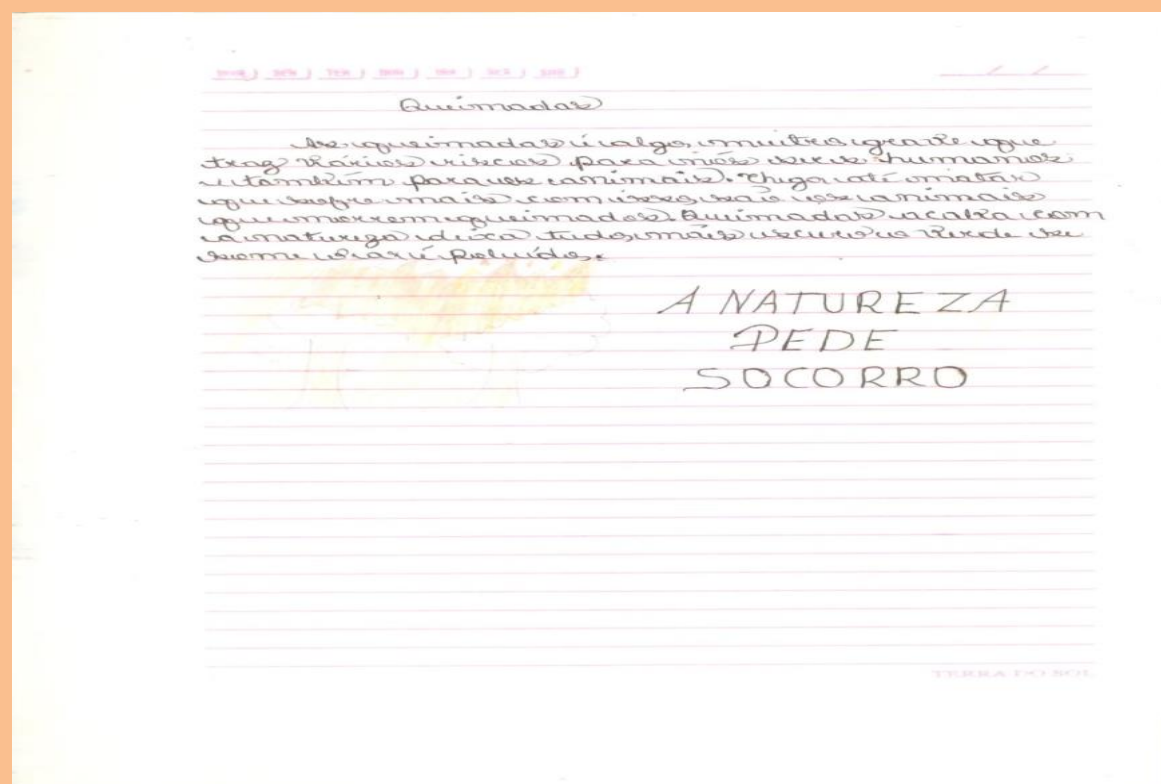 DOM SEG TER QUA QUI SEX SAB
Queimadas
As queimadas é algo muito grave que
traz vários riscos para nós seres humanos
e também para os animais. Chega até matar
que sofre mais com isso, são os animais
que morrem queimados. Queimadas acaba com
a natureza deixa tudo mais escuro o verde se
some o ar é poluído.
A NATUREZA
PEDE
SOCORRO
TERRA DO SOL